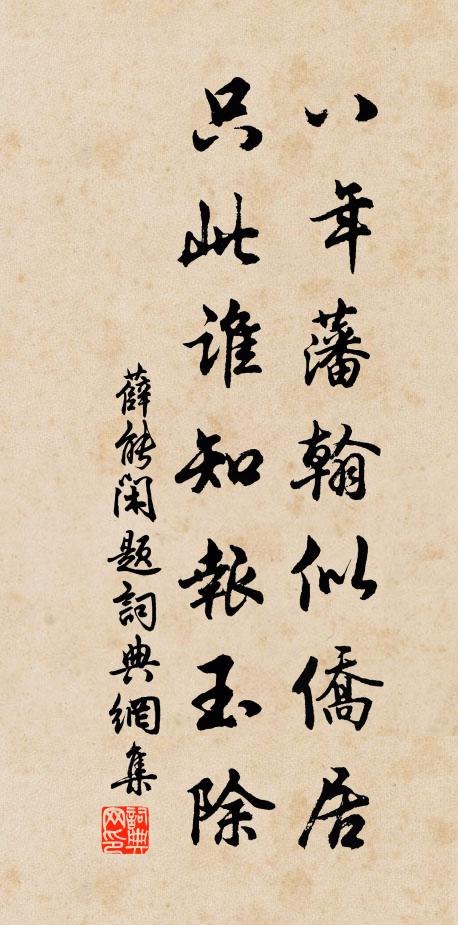 八年藩翰似僑居
只此誰知報玉除
薛能閑題詞典網集
詞典網印